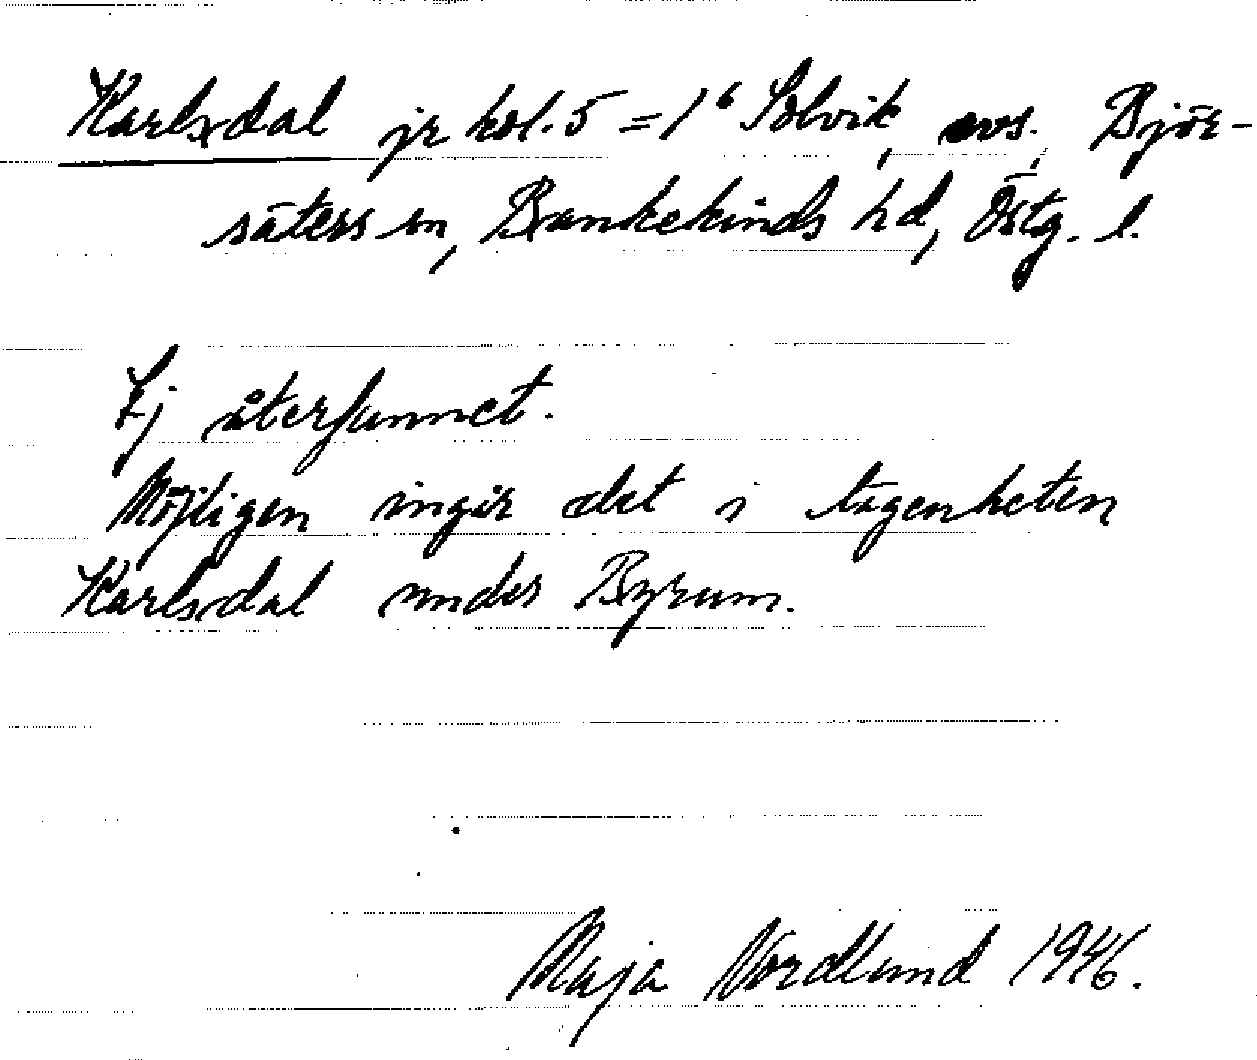 Karlsdal jr kol. 5 = 1⁶ Solvik, avs., Björ-
säters sn, Bankekinds hd, Östg. l.
Ej återfunnet.
Möjligen ingår det i lägenheten
Karlsdal under Byrum.
Maja Nordlund 1946.